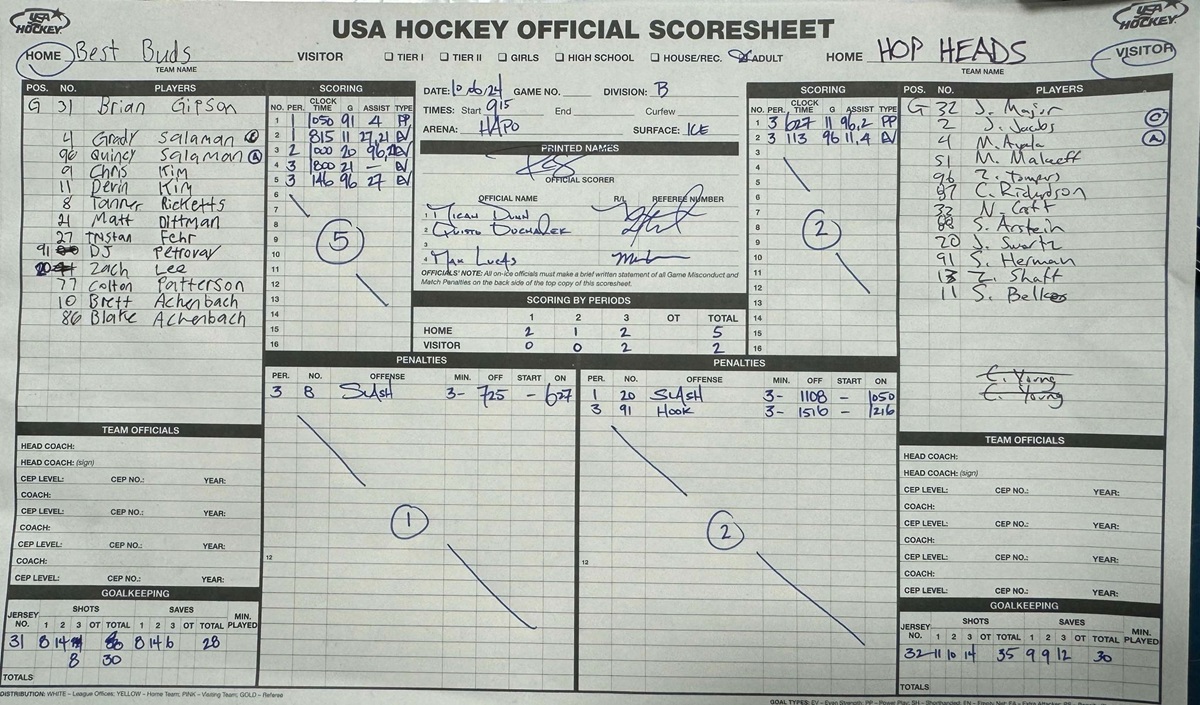 USA HOCKEY
USA HOCKEY OFFICIAL SCORESHEET
USA HOCKEY
HOME Best Buds VISITOR
TEAM NAME
☐ TIER I ☐ TIER II ☐ GIRLS ☐ HIGH SCHOOL ☐ HOUSE/REC. ☒ ADULT
HOME HOP HEADS VISITOR
TEAM NAME
POS. NO. PLAYERS
G 31 Brian Gipson
4 Grady Salaman C
96 Quincy Salaman A
9 Chris Kim
11 Devin Kim
8 Tanner Ricketts
21 Matt Dittman
27 Tristan Fehr
91 DJ Petrovay
20 Zach Lee
77 Colton Patterson
10 Brett Achenbach
86 Blake Achenbach
SCORING
NO. PER. CLOCK TIME G ASSIST TYPE
1 1 1050 91 4 PP
2 1 815 11 27,21 EV
3 2 1000 20 96, EV
4 3 1800 21 — EV
5 3 146 96 27 EV
6
7
8
9
10
11
12
13
14
15
16
5
DATE: 10/6/24 GAME NO. DIVISION: B
TIMES: Start 915 End Curfew
ARENA: HAPO SURFACE: ICE
PRINTED NAMES
OFFICIAL SCORER
OFFICIAL NAME R/L REFEREE NUMBER
1 Micah Dunn
2 Quisto Duchalek
3
4 Max Lucas
OFFICIALS' NOTE: All on-ice officials must make a brief written statement of all Game Misconduct and
Match Penalties on the back side of the top copy of this scoresheet.
SCORING BY PERIODS
1 2 3 OT TOTAL
HOME 2 1 2 5
VISITOR 0 0 2 2
SCORING
NO. PER. CLOCK TIME G ASSIST TYPE
1 3 627 11 96,2 PP
2 3 113 96 11,4 EV
3
4
5
6
7
8
9
10
11
12
13
14
15
16
2
POS. NO. PLAYERS
G 32 J. Major
2 J. Jacobs C
4 M. Ayala A
51 M. Malkeff
96 Z. Tompers
97 C. Richardson
33 N. Catt
88 S. Arstein
20 J. Swartz
91 S. Herman
13 Z. Shaft
11 S. Belkes
C. Young
C. Young
PENALTIES
PER. NO. OFFENSE MIN. OFF START ON
3 8 SLASH 3- 725 - 627
12
1
PENALTIES
PER. NO. OFFENSE MIN. OFF START ON
1 20 SLASH 3- 1108 - 1050
3 91 HOOK 3- 1516 - 1216
12
2
TEAM OFFICIALS
HEAD COACH:
HEAD COACH: (sign)
CEP LEVEL: CEP NO.: YEAR:
COACH:
CEP LEVEL: CEP NO.: YEAR:
COACH:
CEP LEVEL: CEP NO.: YEAR:
COACH:
CEP LEVEL: CEP NO.: YEAR:
GOALKEEPING
JERSEY NO. SHOTS SAVES MIN. PLAYED
1 2 3 OT TOTAL 1 2 3 OT TOTAL
31 8 14 8 14 6 28
8 30
TOTALS
TEAM OFFICIALS
HEAD COACH:
HEAD COACH: (sign)
CEP LEVEL: CEP NO.: YEAR:
COACH:
CEP LEVEL: CEP NO.: YEAR:
COACH:
CEP LEVEL: CEP NO.: YEAR:
COACH:
CEP LEVEL: CEP NO.: YEAR:
GOALKEEPING
JERSEY NO. SHOTS SAVES MIN. PLAYED
1 2 3 OT TOTAL 1 2 3 OT TOTAL
32 - 11 10 14 35 9 9 12 30
TOTALS
DISTRIBUTION: WHITE – League Offices; YELLOW – Home Team; PINK – Visiting Team; GOLD – Referee